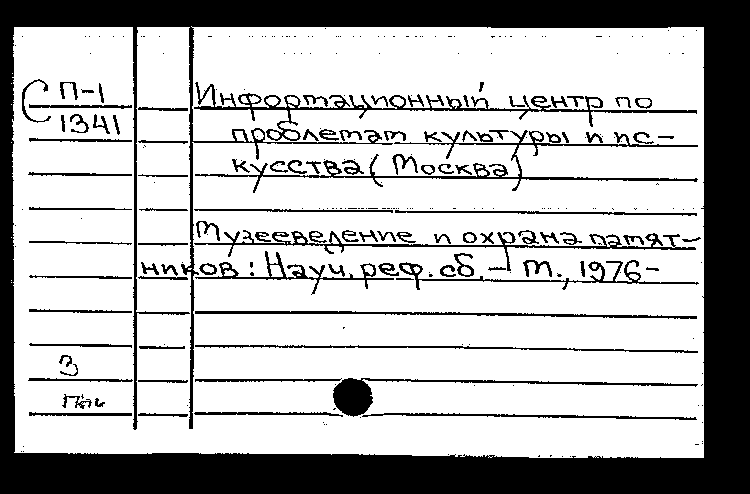 С П-1
1341
Информационный центр по
проблемам культуры и ис-
кусства (Москва)
Музееведение и охрана памят-
ников: Науч. реф. сб. – М., 1976-
3